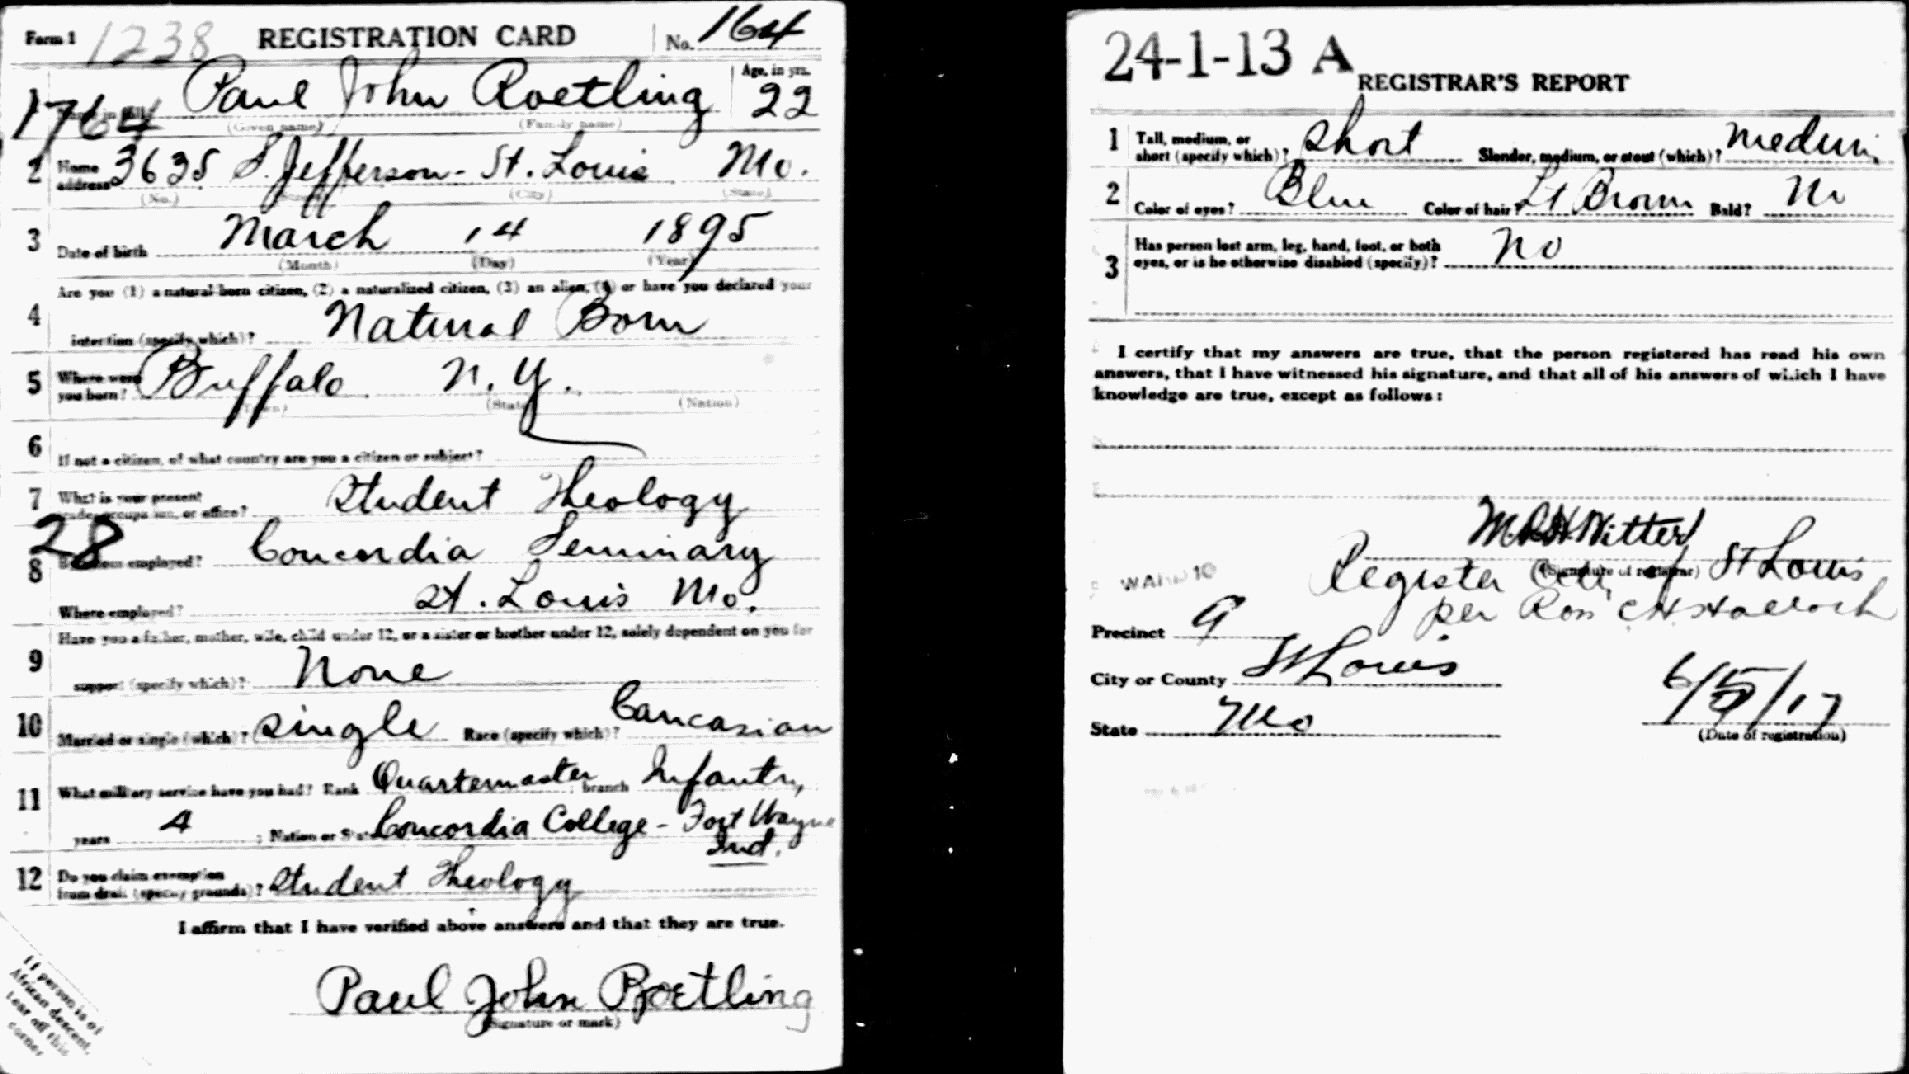 Form 1 1238 REGISTRATION CARD No. 164
1764 Paul John Roetling Age, in yrs. 22
(Given name) (Family name)
2 Home address 3635 S. Jefferson - St. Louis Mo.
(No.) (City) (State)
3 Date of birth March 14 1895
(Month) (Day) (Year)
Are you (1) a natural-born citizen, (2) a naturalized citizen, (3) an alien, (4) or have you declared your
4 intention (specify which)? Natural Born
5 Where were you born? Buffalo N.Y.
(Town) (State) (Nation)
6 If not a citizen, of what country are you a citizen or subject?
7 What is your present trade, occupation, or office? Student Theology
28
8 By whom employed? Concordia Seminary
Where employed? St. Louis Mo.
Have you a father, mother, wife, child under 12, or a sister or brother under 12, solely dependent on you for
9 support (specify which)? None
10 Married or single (which)? Single Race (specify which)? Caucasian
11 What military service have you had? Rank Quartemaster ; branch Infantry
years 4 ; Nation or State Concordia College - Fort Wayne
Ind.
12 Do you claim exemption from draft (specify grounds)? Student Theology
I affirm that I have verified above answers and that they are true.
Paul John Roetling
(Signature or mark)
If person is of
African descent,
tear off this
corner
24-1-13 A
REGISTRAR'S REPORT
1 Tall, medium, or short (specify which)? Short Slender, medium, or stout (which)? Medium
2 Color of eyes? Blue Color of hair? Lt Brown Bald? No
3 Has person lost arm, leg, hand, foot, or both eyes, or is he otherwise disabled (specify)? No
I certify that my answers are true, that the person registered has read his own
answers, that I have witnessed his signature, and that all of his answers of which I have
knowledge are true, except as follows:
Witter
(Signature of registrar)
Register City of St Louis
per
Precinct 9
City or County St Louis
State Mo 6/5/17
(Date of registration)